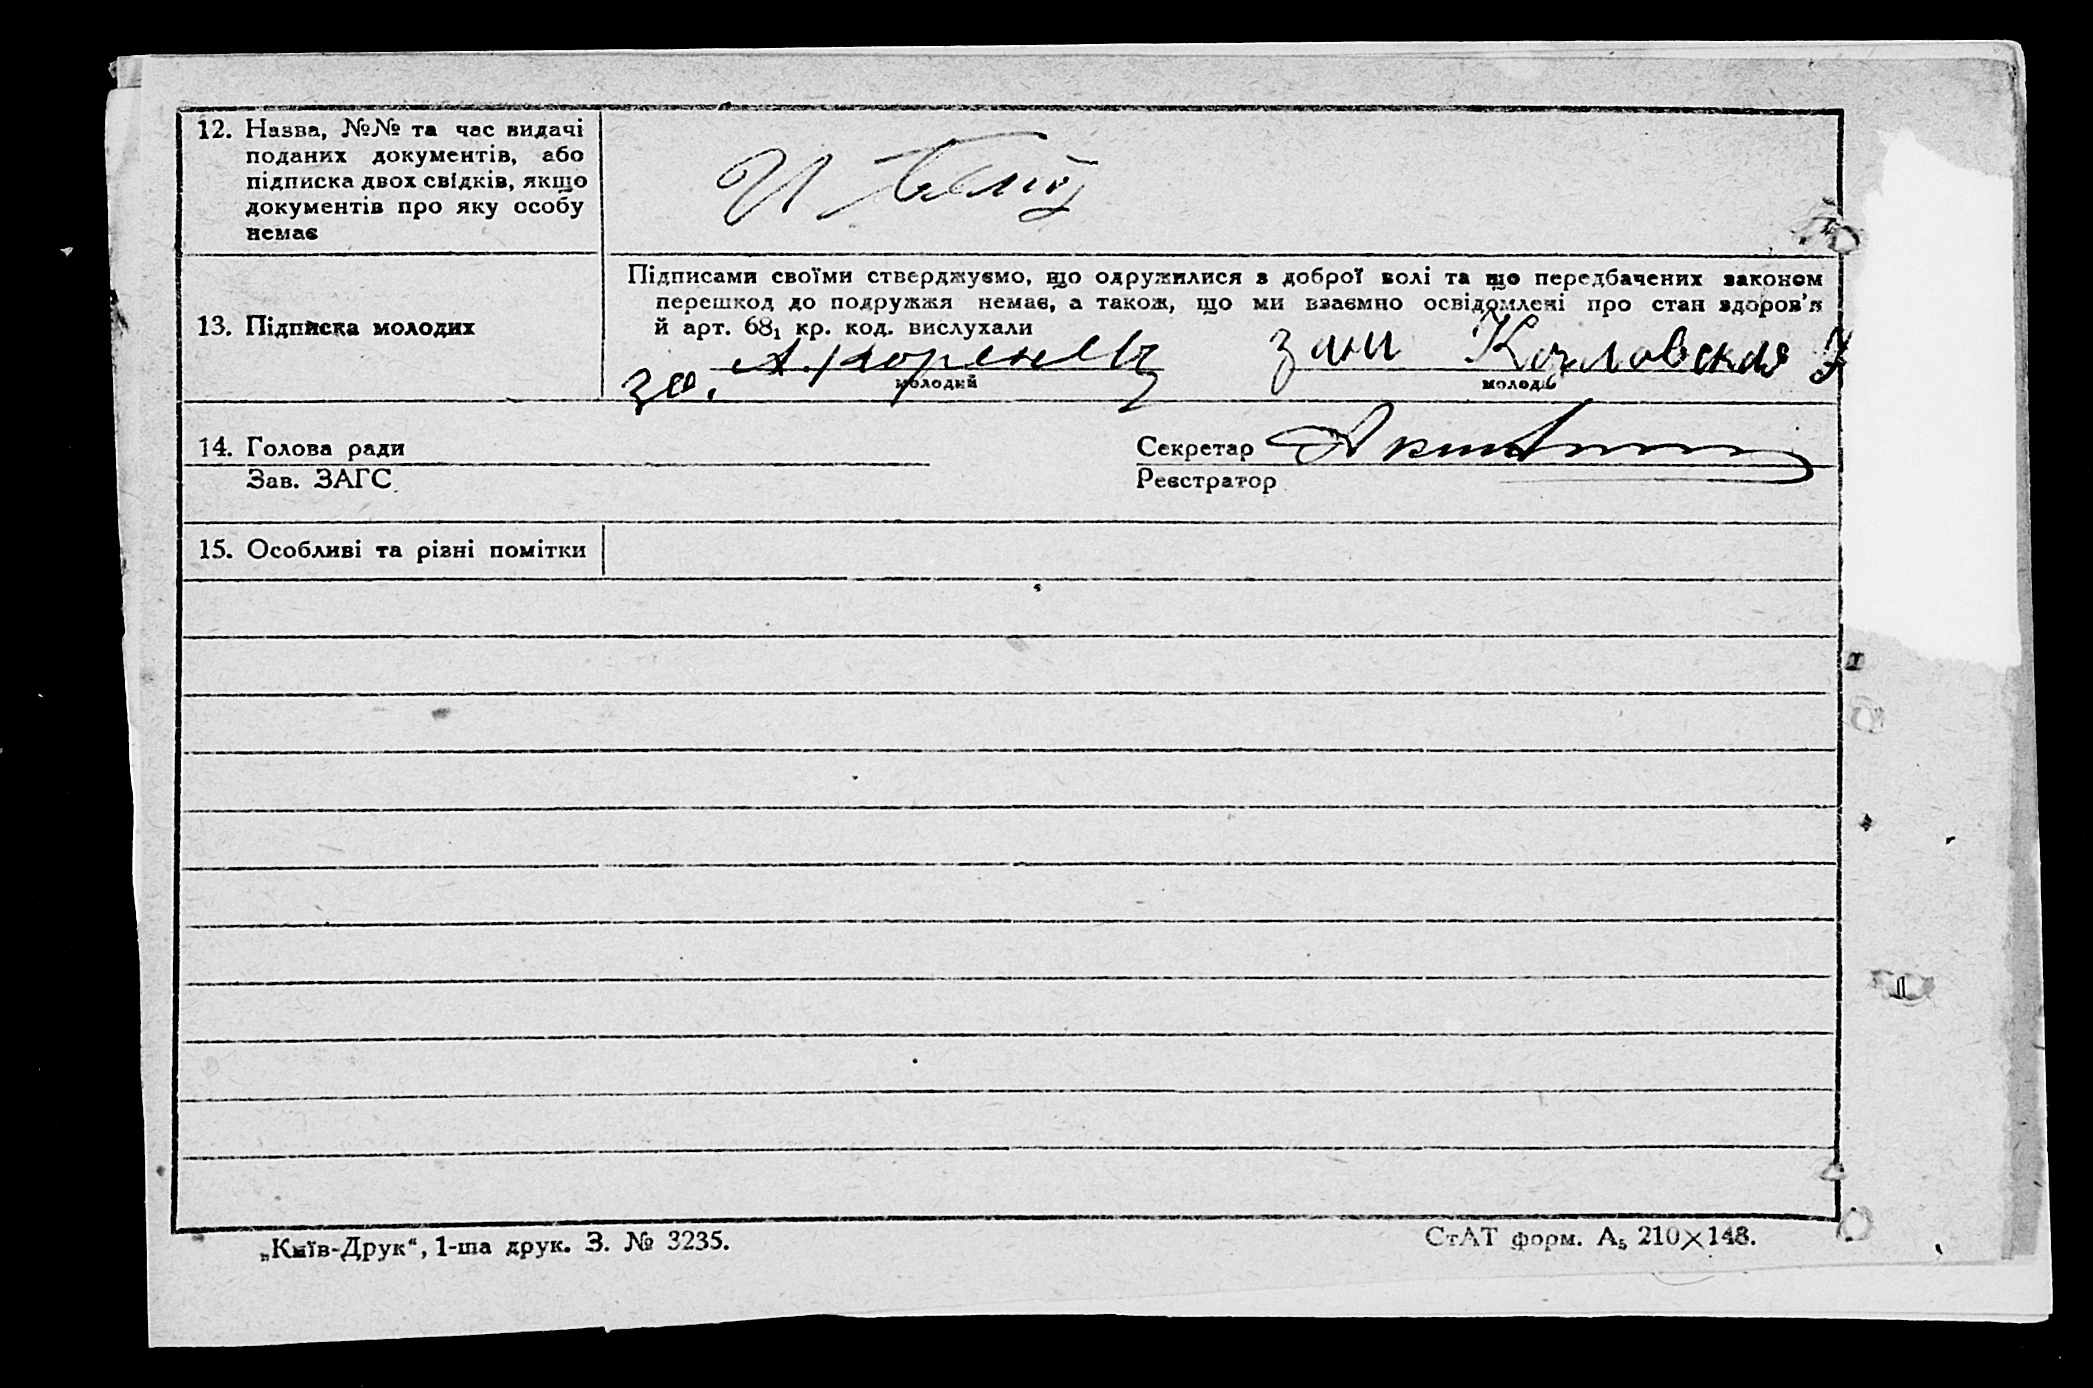 12. Назва, №№ та час видачі
поданих документів, або
підписка двох свідків, якщо
документів про яку особу
немає
И
13. Підписка молодих
Підписами своїми стверджуємо, що одружилися з доброї волі та що передбачених законом
перешкод до подружжя немає, а також, що ми взаємно освідомлені про стан здоров'я
й арт. 68₁ кр. код. вислухали
за. А. Коренец
молодий
Козловская
молодії
14. Голова ради
Зав. ЗАГС
Секретар
Реєстратор
15. Особливі та різні помітки
„Київ-Друк“, 1-ша друк. З. № 3235.
СтАТ форм. А₅ 210×148.